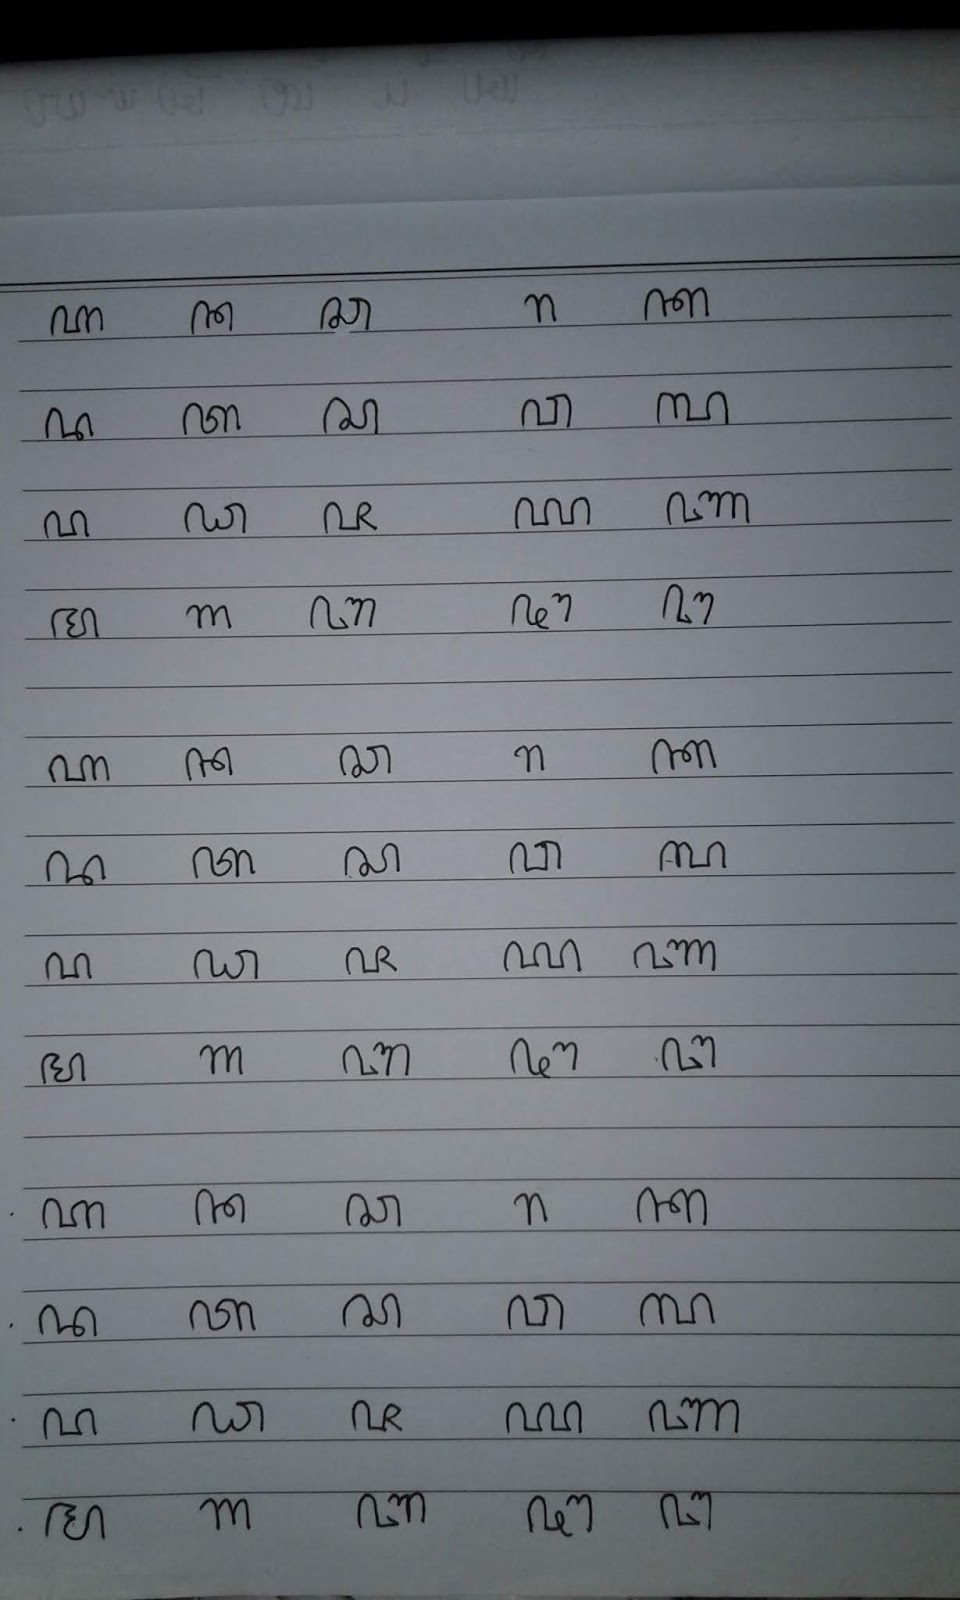 ꦲ ꦤ ꦕ ꦫ ꦏ
ꦢ ꦠ ꦱ ꦮ ꦭ
ꦥ ꦝ ꦗ ꦪ ꦚ
ꦩ ꦒ ꦧ ꦛ ꦔ
ꦲ ꦤ ꦕ ꦫ ꦏ
ꦢ ꦠ ꦱ ꦮ ꦭ
ꦥ ꦝ ꦗ ꦪ ꦚ
ꦩ ꦒ ꦧ ꦛ ꦔ
ꦲ ꦤ ꦕ ꦫ ꦏ
ꦢ ꦠ ꦱ ꦮ ꦭ
ꦥ ꦝ ꦗ ꦪ ꦚ
ꦩ ꦒ ꦧ ꦛ ꦔ